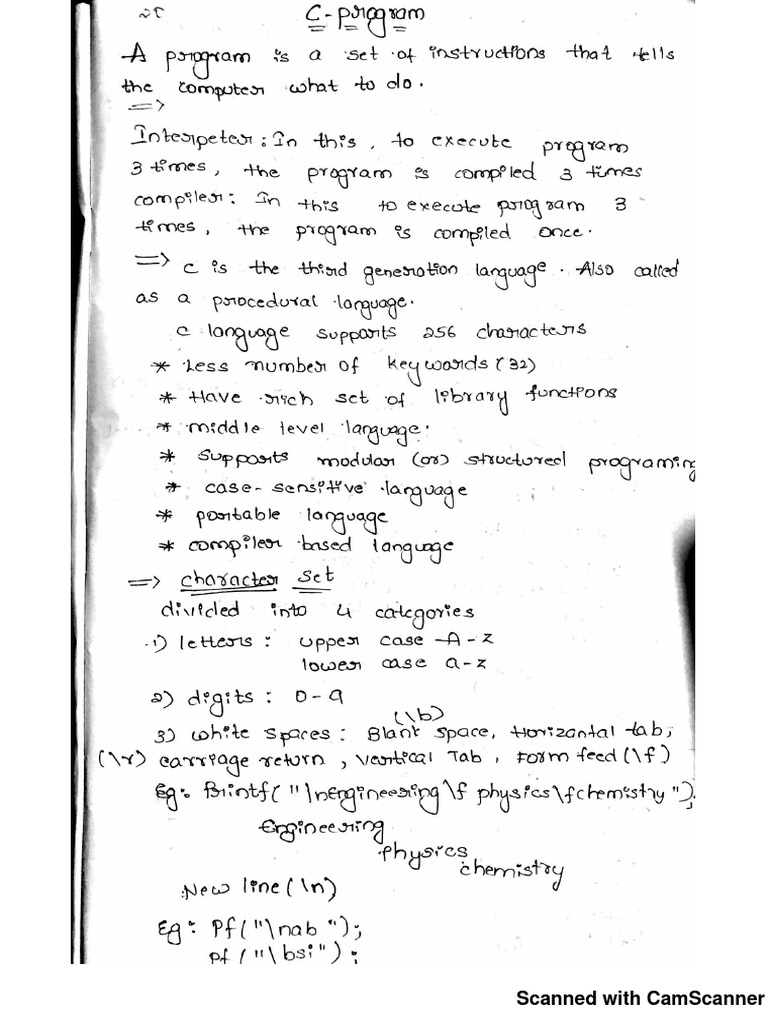 C-program
A program is a set of instructions that tells
the computer what to do.
=>
Interpeter: In this, to execute program
3 times, the program is compiled 3 times
compiler: In this to execute program 3
times, the program is compiled once.
=> c is the third generation language. Also called
as a procedural language.
c language supports 256 characters
* Less number of keywords (32)
* Have rich set of library functions
* middle level language.
* supports modular (or) structured programing
* case-sensitive language
* portable language
* compiler based language
=> character set
divided into 4 categories
1) letters: upper case A-Z
lower case a-z
2) digits: 0-9
(\b)
3) white spaces: Blank space, Horizantal tab,
(\r) carriage return, vertical Tab, Form feed (\f)
Eg: Printf("\nEngineering\f physics\fchemistry");
Engineering
physics
chemistry
New line (\n)
Eg: Pf("\nab");
pf("\bsi");
Scanned with CamScanner